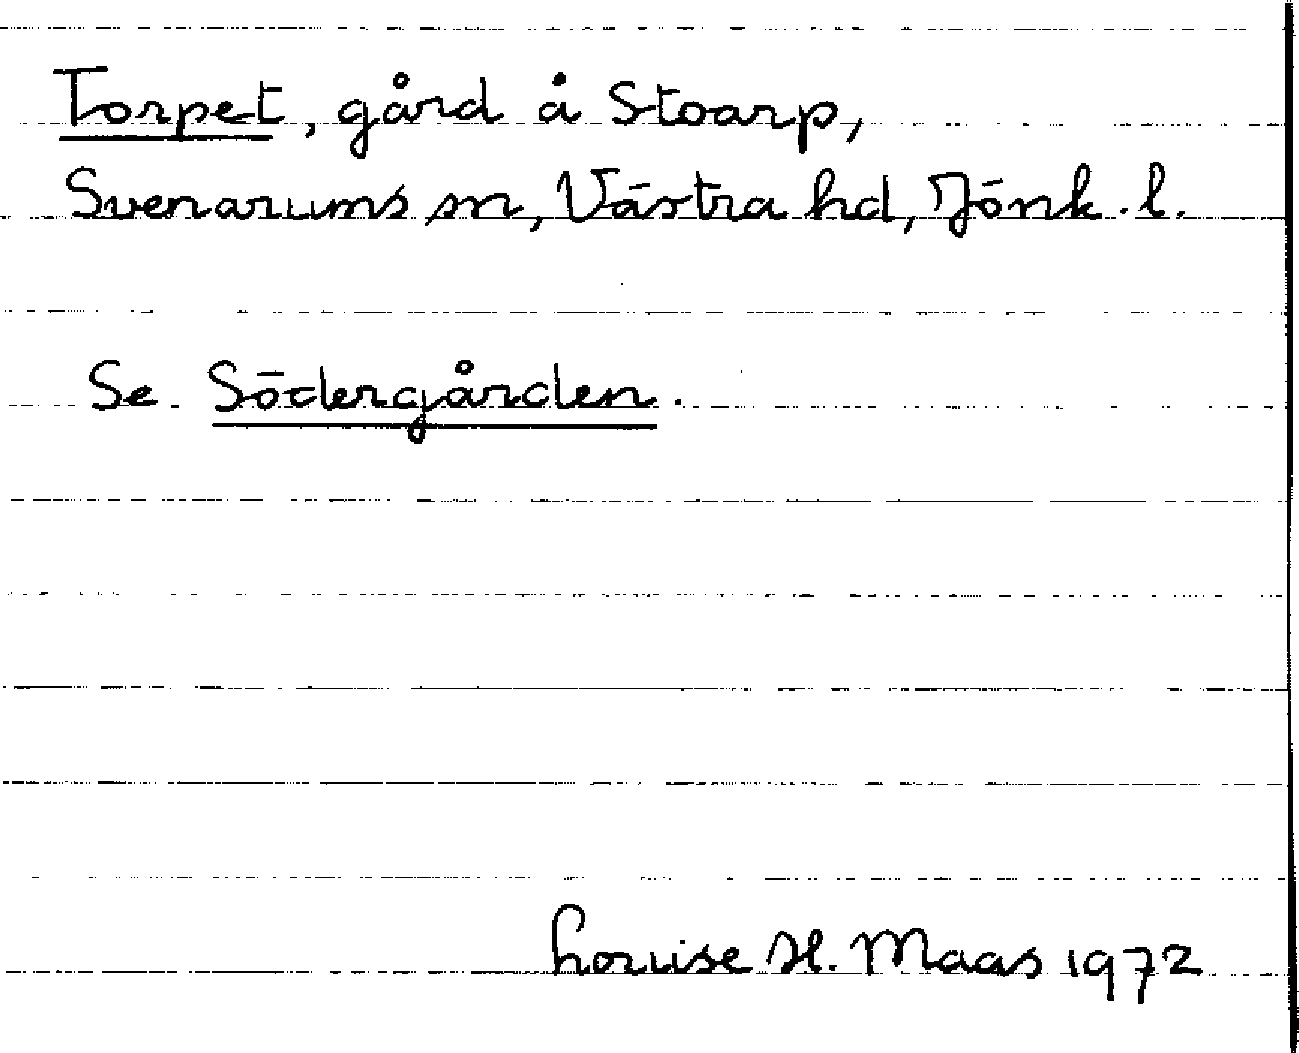 Torpet, gård å Stoarp,
Svenarums sn, Västra hd, Jönk. l.
Se Södergården.
Louise H. Maas 1972